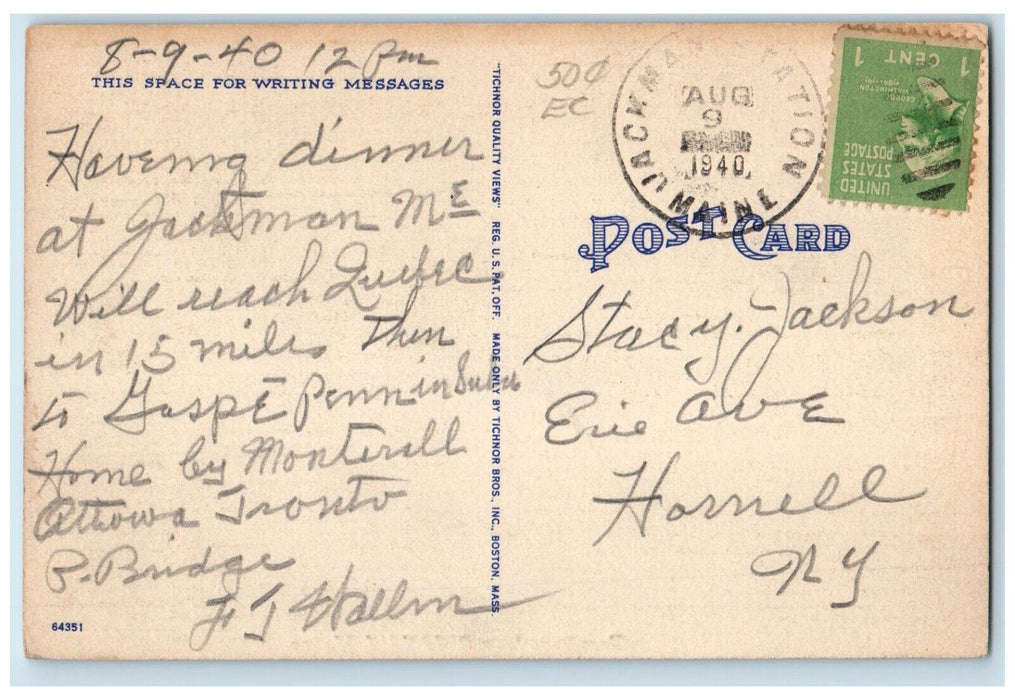 8-9-40 12 Pm
THIS SPACE FOR WRITING MESSAGES
Haveing dinner
at Jackman Me
Will reach Quebec
in 15 miles Then
to Gaspe Penninsula
Home by Monterall
Attowa Tronto
P. Bridge
F J Hallm
64351
"TICHNOR QUALITY VIEWS" REG. U.S. PAT. OFF. MADE ONLY BY TICHNOR BROS., INC., BOSTON, MASS.
50¢
EC
JACKMAN STATION
AUG
9
1940
MAINE
1 CENT 1
GEORGE
WASHINGTON
UNITED
STATES
POSTAGE
POST CARD
Stacy Jackson
Erie Ave
Hornell
NY